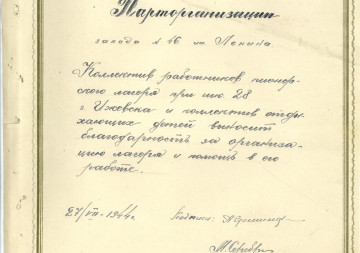 Парторганизации
завода № 46 им. Ленина.
Коллектив работников пионер-
ского лагеря при шк 28
г. Ижевска и коллектив отды-
хающих детей выносит
благодарность за организа-
цию лагеря и помощь в его
работе.
27/VII - 1944 г. Подписи: